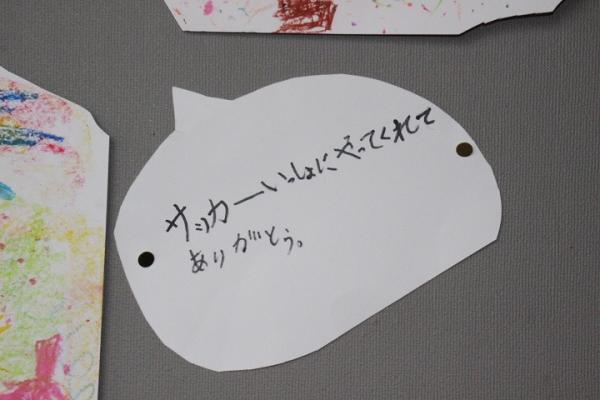 サッカーいっしょにやってくれて
ありがとう。